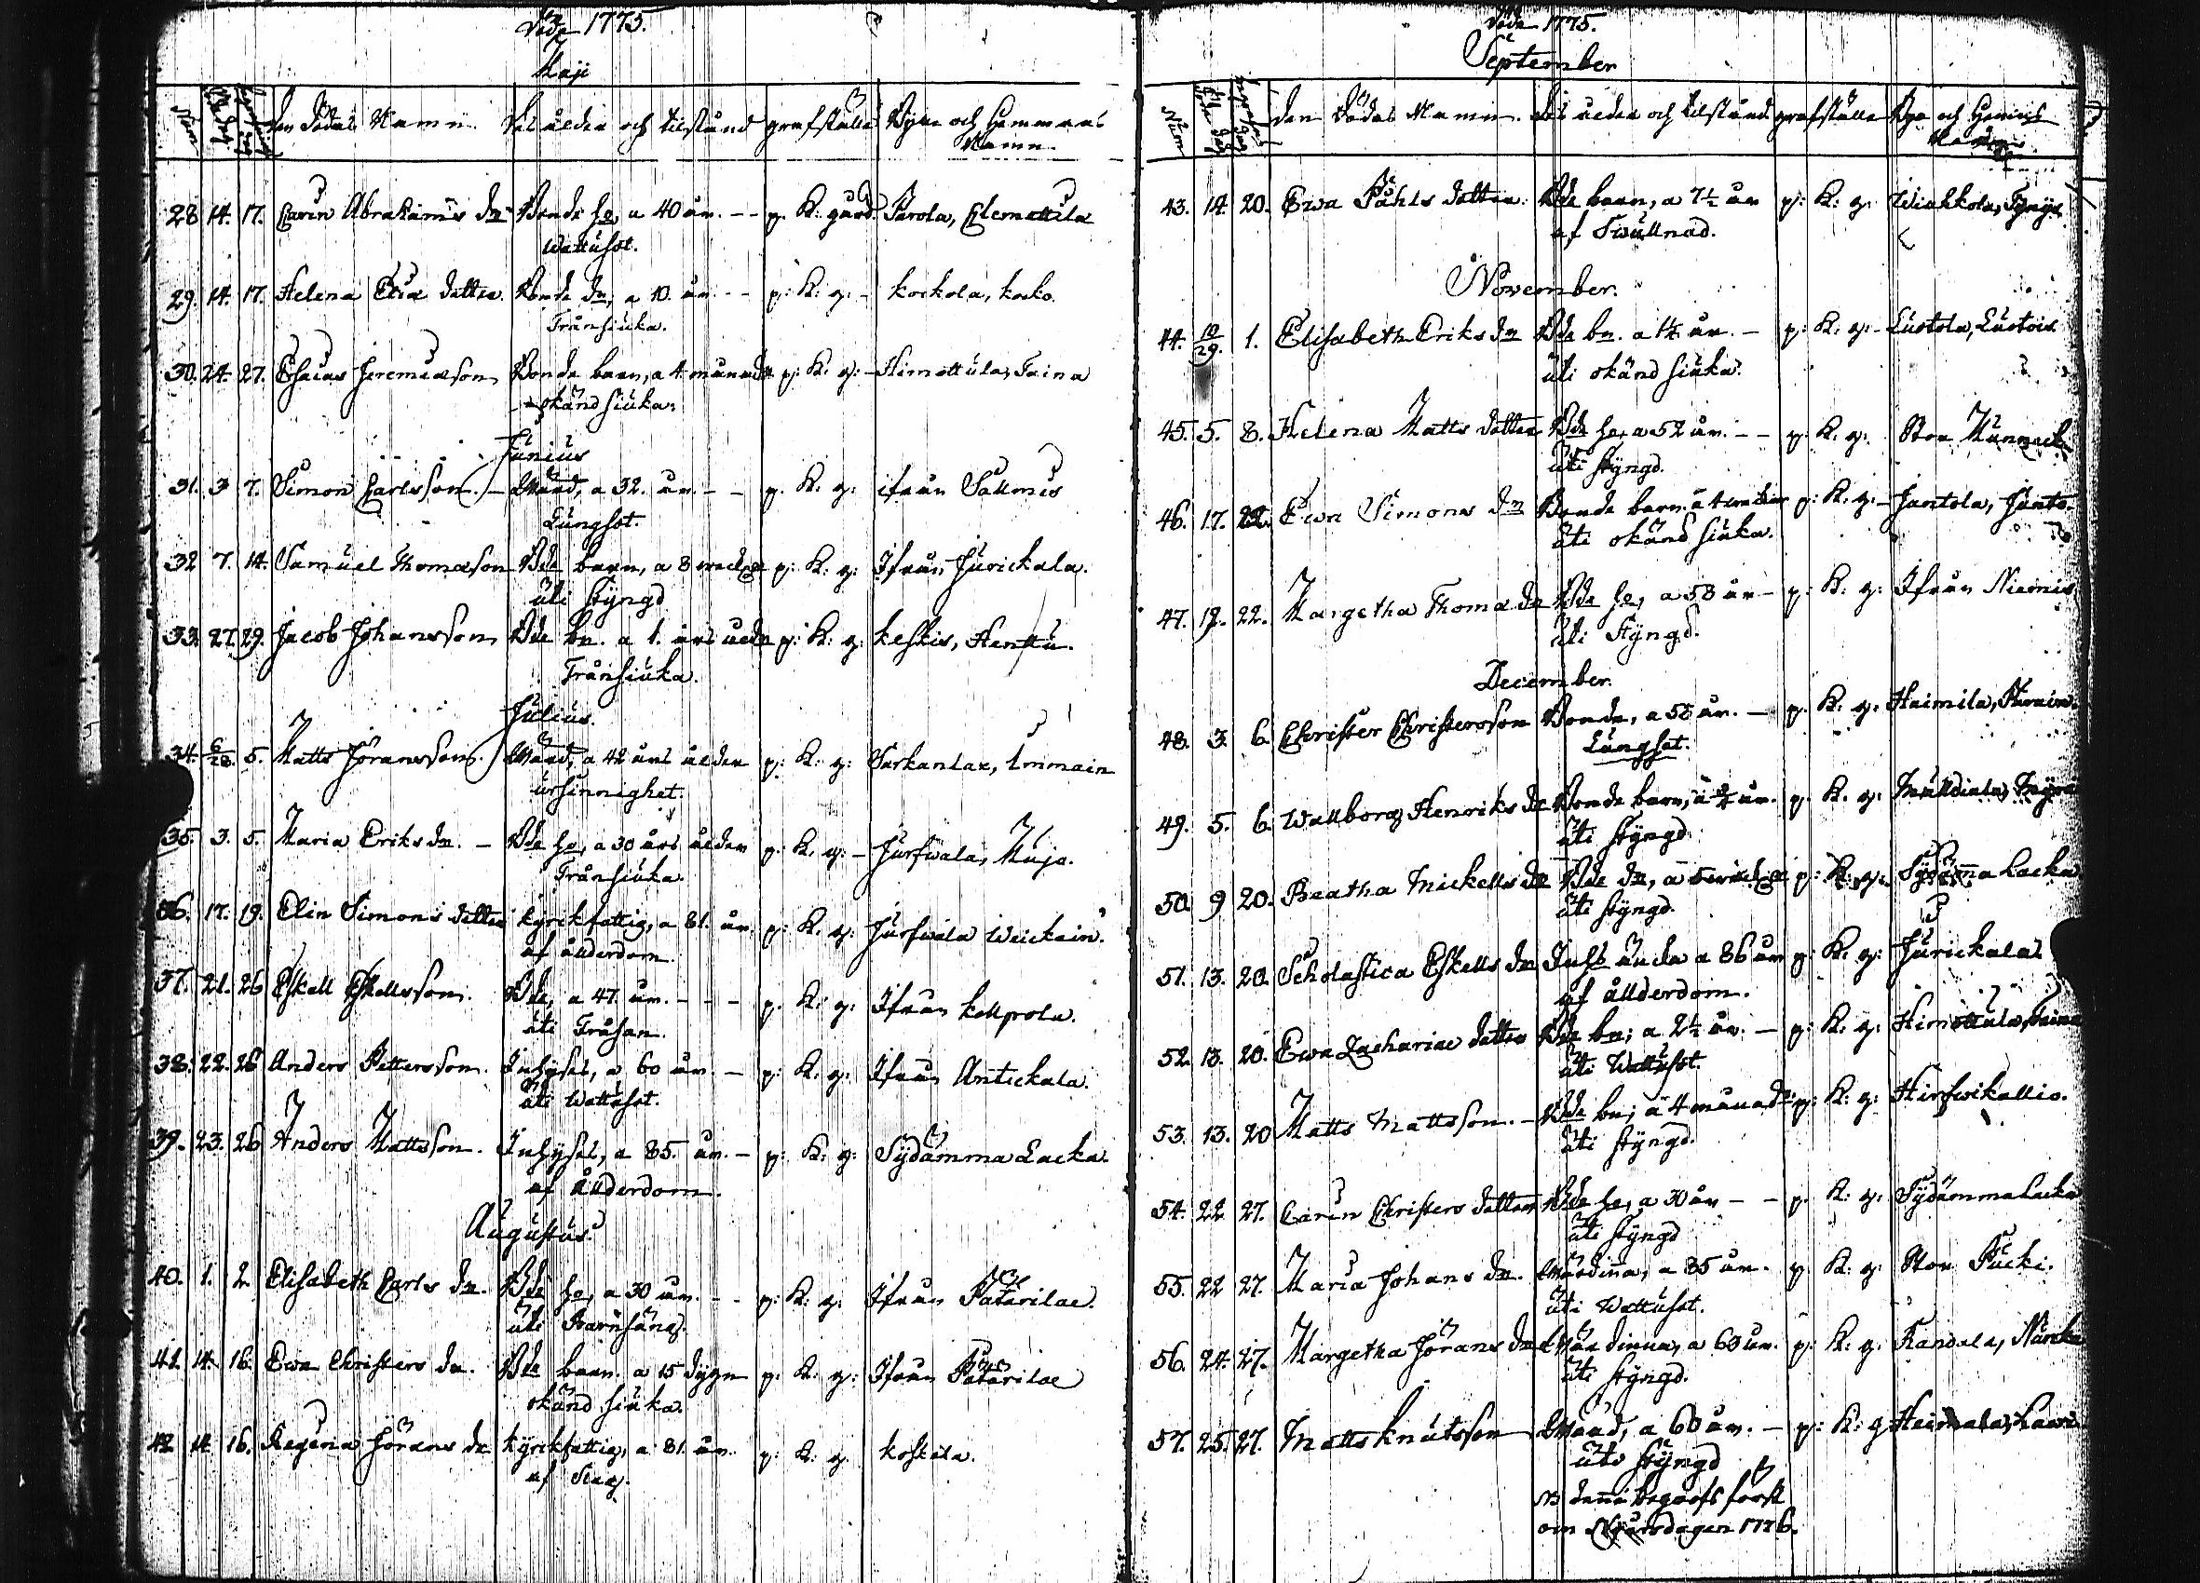 Döde 1775.
Maji
Num
Den Dödas Namn. Des ålder och tilstånd grafställe Byns och Hemmans
Namn.
28 14. 17. Carin Abrahams dr Bonde ho, a 40 år. - - p. K: gård. Parola, Clemettila
Wattusot.
29. 14. 17. Helena dotter. Bonde dr, a 10. år. - - p: K: g: - Kockola, Kocko.
Trånsiuka.
30. 24. 27. Esaias Jeremiæson Bonde barn, a 4 månad p: K: g: - Himottula, Taina
okänd siuka.
Junius
31. 3 7. Simon Carlsson. - Måad, a 32. år. - - p. K: g: ifrån Sallmis
Lungsot.
32 7. 14. Samuel Thomæson Bde barn, a 8 weckor p: K: g: Ifrån Jurickala.
uti styngd
33. 27. 29. Jacob Johansson Bde bn. a 1. års ålder p: K: g: Keskis, Henttu.
Trånsiuka.
Julius.
34. 6/28. 5. Matts Jöransson. Måad, a 42 års ålder p: K: g: Sarkanlax, Immain
ursinnighet.
35. 3. 5. Maria Eriks dr. - Bde ho, a 30 års ålder p: K: g: - Jurfwala, Mujo.
Trånsiuka.
36. 17. 19. Elin Simons dotter kyrckfattig, a 81. år. p: K: g: Jurfwala Weickain.
af ålderdom.
37. 21. 26 Eskell Eskellsson. Bde, a 47. år. - - - p: K: g: Ifrån Kellprola.
uti Tråsan.
38. 22. 26 Anders Pettersson. Inhyses, a 60 år. - p: K: g: Ifrån Antickala.
uti Wattusot.
39. 23. 26 Anders Mattsson. Inhyses, a 85. år. - p: K: g: Sydämma Lacka.
af ålderdom.
Augustus.
40. 1. 2. Elisabeth Carls dr. Bde ho, a 30 år. - - p: K: g: Ifrån Patarilax.
uti Barnsäng.
41. 14. 16. Ewa Christers dr. Bde barn. a 15 dygn p: K: g: Ifrån Patarilax
okänd siuka.
42 14 16. Regina Jörans dr kyrckfattig, a 81. år. p: K: g: Koskela.
af Slag.
Döde 1775.
September
Num
Den Dödas Namn. Des ålder och tilstånd grafställe Byns och Hemans
Namn.
43. 14. 20. Ewa Påhls dotter. Bde barn, a 7½ år p: K: g: Wiahkola,
af Swullnad.
November.
44. 10/29. 1. Elisabeth Eriks dr Bde bn. a 1½ år. - p: K: g: - Lustola, Lustois
uti okänd siuka.
45. 5. 8. Helena Matts dotter Bde ho, a 52 år. - - p: K: g: Stor
uti styngd.
46. 17. 22. Ewa Simons dr Bonde barn a 4 weckor p: K: g: - Jantola, Janto.
uti okänd siuka.
47. 19. 22. Margetha Thomæ dr Bde ho, a 58 år - p: K: g: Ifrån Niemis
uti Styngd.
December.
48. 3. 6. Christer Christersson Bonde, a 58 år. - p. K: g. Haimila,
Lungsot.
49. 5. 6. Wallborg Henriks dr Bonde barn, a ¾ år. p: K: g:
uti styngd.
50. 9 20. Beatha Mickells dr Bde dr, a 5 weckor p: K: g: Sydämma Lacka
uti styngd.
51. 13. 20. Scholastica Eskells dr Inhs änka a 86 år p: K: g: Jurickala.
af ålderdom.
52. 13. 20. Ewa Zachariæ dotter Bde bn; a 2½ år. - p: K: g: Himottula, Taina
uti Wattusot.
53. 13. 20 Matts Mattsson. - Bde bn; a 4 månader p: K: g: Hirfwikallio.
uti styngd.
54. 22 27. Carin Christers dotter Bde ho, a 30 år - - p. K: g: Sydämmalacka
uti styngd
55. 22 27. Maria Johans dr. Wärdinna, a 85 år. p. K: g: Stor Pucki.
uti Wattusot.
56. 24. 27. Margetha Jörans dr Wärdinna, a 60 år. p: K: g: Kandala,
uti styngd.
57. 25. 27. Matts Knutsson Måad, a 60 år. - p: K: g Haimala,
uti styngd
NB denne begrofs först
om Nyårsdagen 1776.